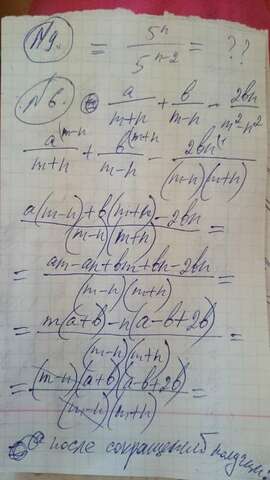 №9. = 5^n / 5^(n-2) = ??
№6. a/(m+n) + b/(m-n) - 2bn/(m²-n²)
a^(m-n/(m+n) + b^(m+n/(m-n) - 2bn^(1/(m-n)(m+n)
(a(m-n)+b(m+n)-2bn)/((m-n)(m+n)) =
= (am-an+bm+bn-2bn)/((m-n)(m+n)) =
= (m(a+b)-n(a-b+2b))/((m-n)(m+n)) =
= ((m-n)(a+b)(a-b+2b))/((m-n)(m+n)) =
после сокращений